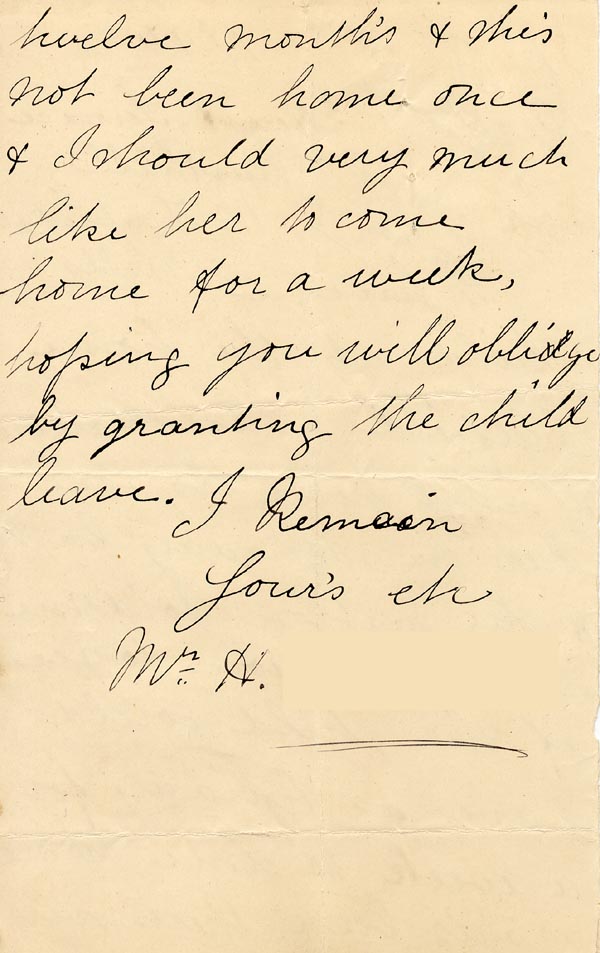 twelve month's & she's
not been home once
& I should very much
like her to come
home for a week,
hoping you will oblidge
by granting the child
leave. I Remain
Your's etc
Mr H.